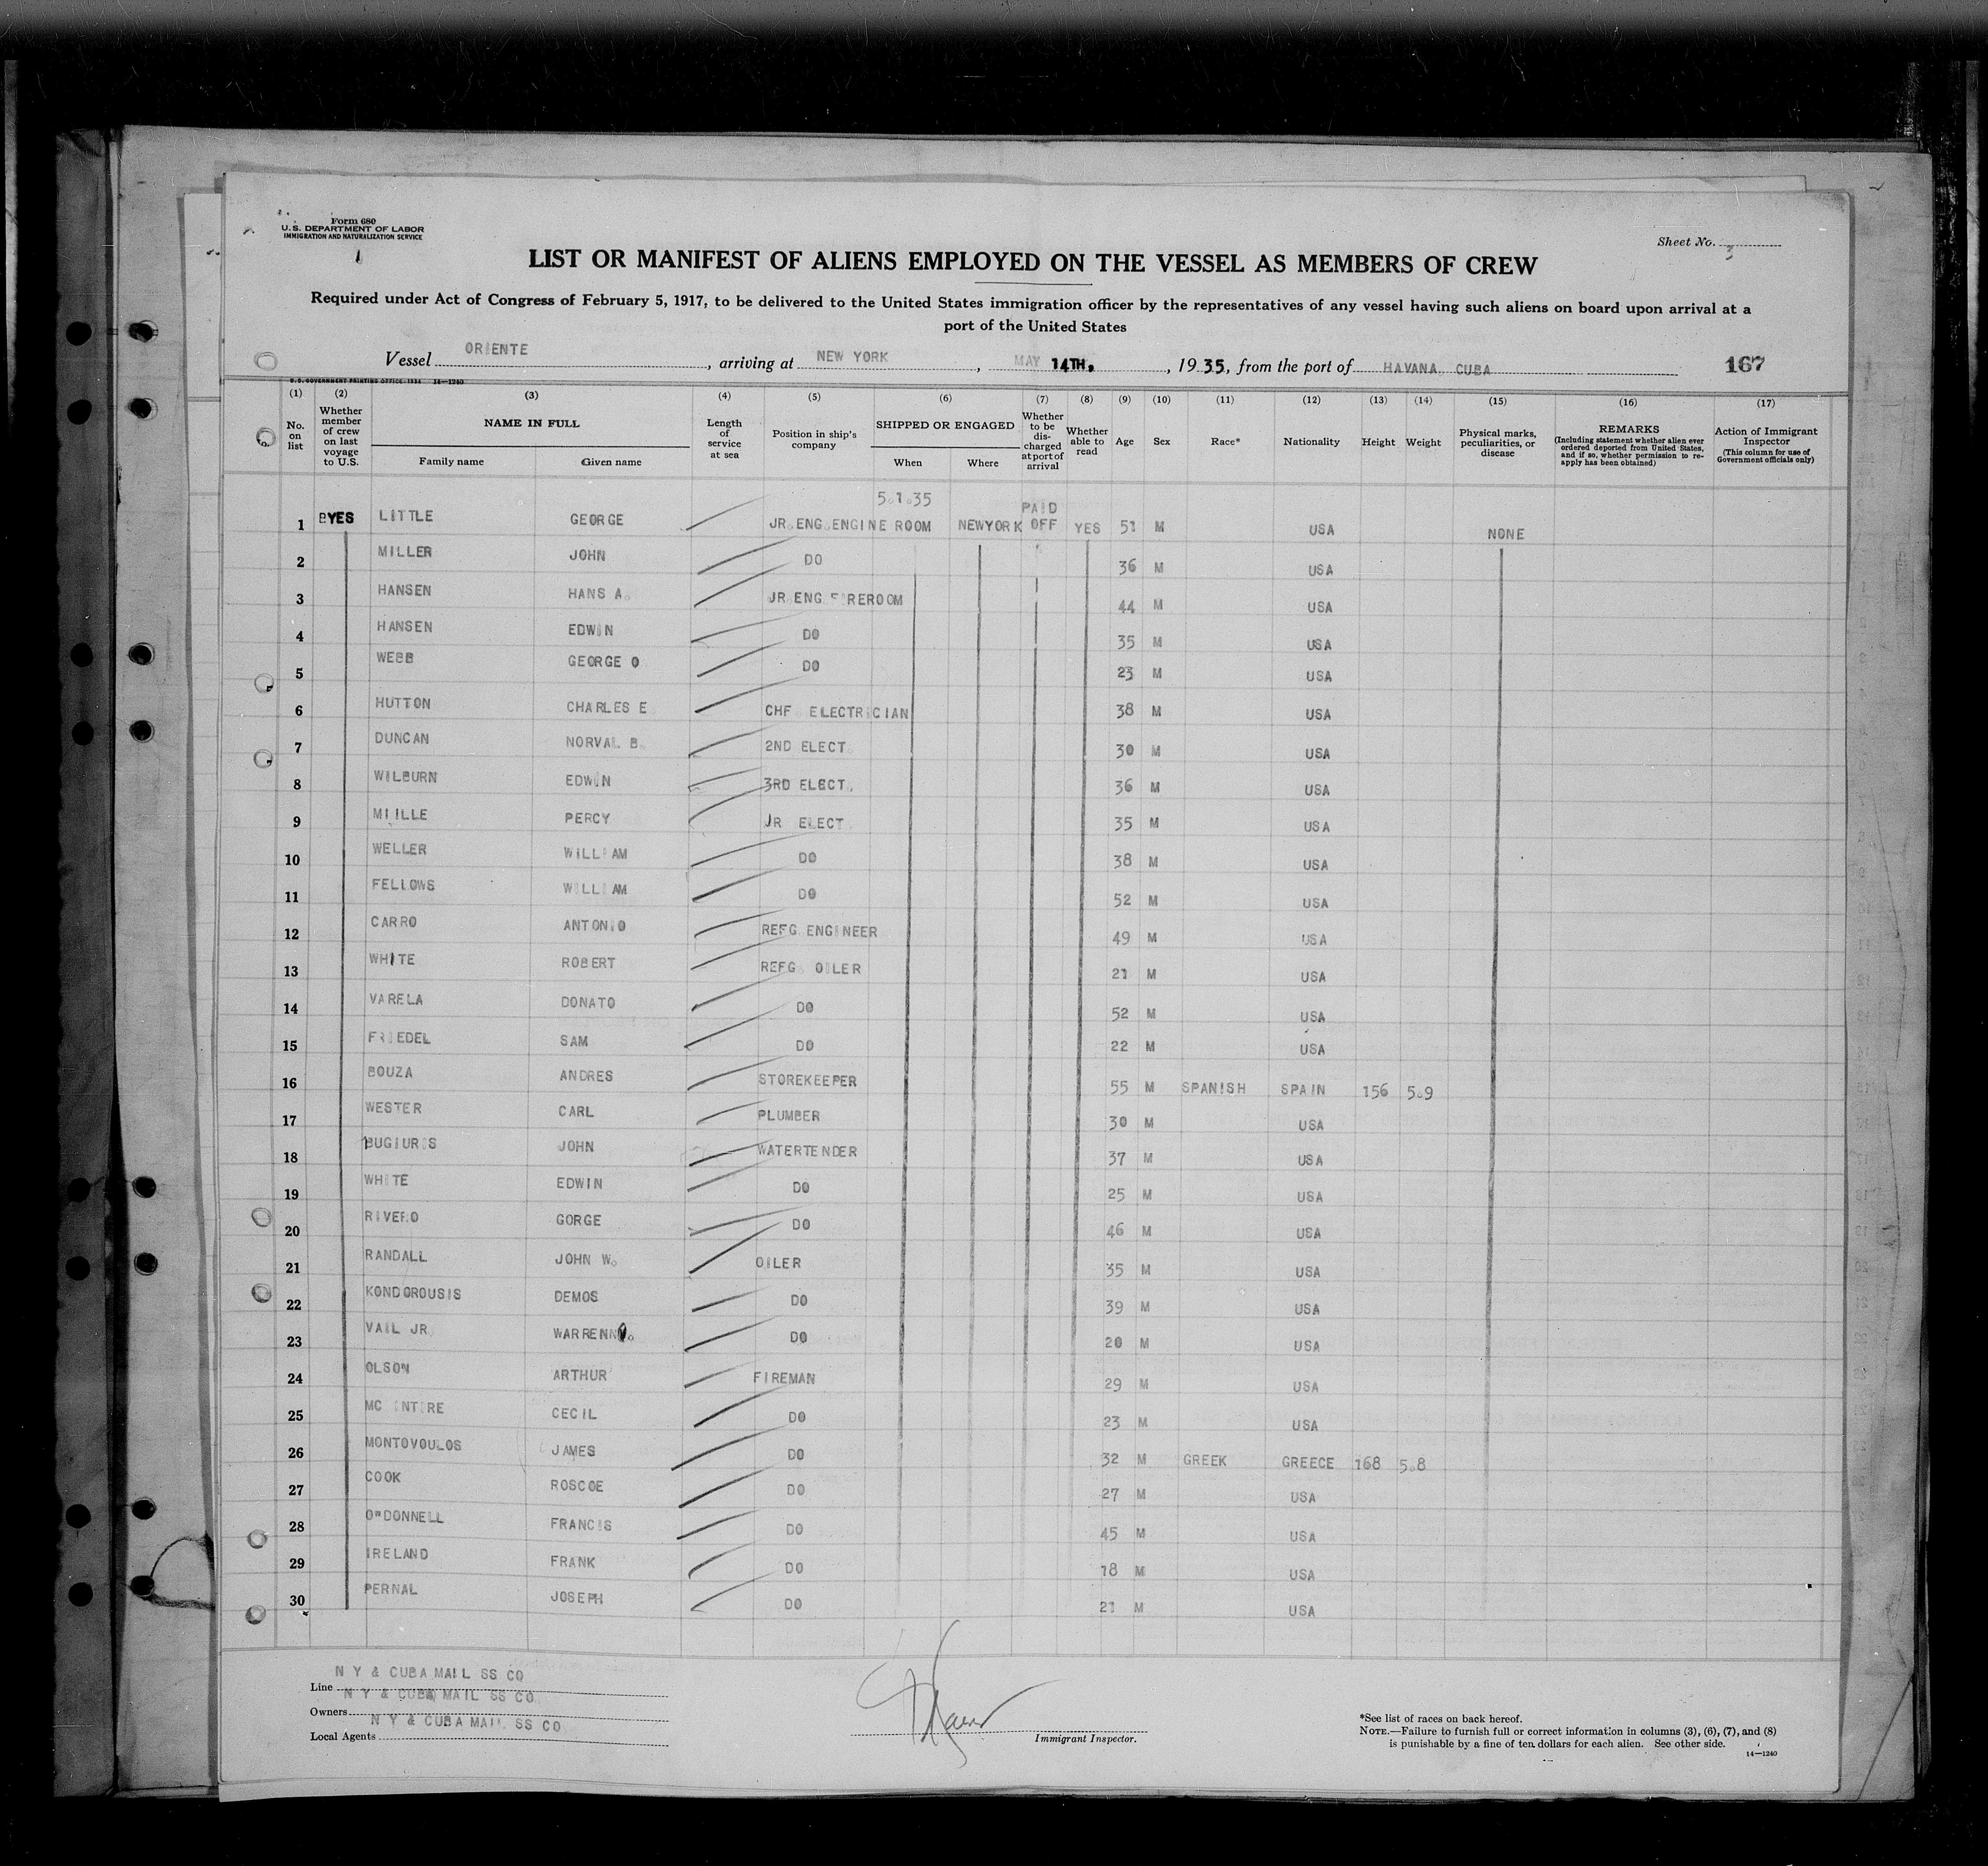 Form 680
U.S. DEPARTMENT OF LABOR
IMMIGRATION AND NATURALIZATION SERVICE
Sheet No. 3
LIST OR MANIFEST OF ALIENS EMPLOYED ON THE VESSEL AS MEMBERS OF CREW
Required under Act of Congress of February 5, 1917, to be delivered to the United States immigration officer by the representatives of any vessel having such aliens on board upon arrival at a
port of the United States
Vessel ORIENTE, arriving at NEW YORK, MAY 14TH, 1935, from the port of HAVANA CUBA 167
U.S. GOVERNMENT PRINTING OFFICE: 1934 14—1240
(1) (2) (3) (4) (5) (6) (7) (8) (9) (10) (11) (12) (13) (14) (15) (16) (17)
No. on list
Whether member of crew on last voyage to U.S.
NAME IN FULL
Family name Given name
Length of service at sea
Position in ship's company
SHIPPED OR ENGAGED
When Where
Whether to be discharged at port of arrival
Whether able to read
Age Sex Race* Nationality Height Weight
Physical marks, peculiarities, or disease
REMARKS
(Including statement whether alien ever ordered deported from United States, and if so, whether permission to reapply has been obtained)
Action of Immigrant Inspector
(This column for use of Government officials only)
5.1.35 PAID
1 YES LITTLE GEORGE JR.ENG.ENGINE ROOM NEWYORK OFF YES 51 M USA NONE
2 MILLER JOHN DO 36 M USA
3 HANSEN HANS A. JR.ENG.FIREROOM 44 M USA
4 HANSEN EDWIN DO 35 M USA
5 WEBB GEORGE O DO 23 M USA
6 HUTTON CHARLES E CHF. ELECTRICIAN 38 M USA
7 DUNCAN NORVAL B. 2ND ELECT. 30 M USA
8 WILBURN EDWIN 3RD ELECT. 36 M USA
9 MIILLE PERCY JR ELECT. 35 M USA
10 WELLER WILLIAM DO 38 M USA
11 FELLOWS WILLIAM DO 52 M USA
12 CARRO ANTONIO REFG.ENGINEER 49 M USA
13 WHITE ROBERT REFG. OILER 21 M USA
14 VARELA DONATO DO 52 M USA
15 FRIEDEL SAM DO 22 M USA
16 BOUZA ANDRES STOREKEEPER 55 M SPANISH SPAIN 156 5.9
17 WESTER CARL PLUMBER 30 M USA
18 BUGIURIS JOHN WATERTENDER 37 M USA
19 WHITE EDWIN DO 25 M USA
20 RIVERO GORGE DO 46 M USA
21 RANDALL JOHN W. OILER 35 M USA
22 KONDOROUSIS DEMOS DO 39 M USA
23 VAIL JR WARREN DO 20 M USA
24 OLSON ARTHUR FIREMAN 29 M USA
25 MC INTIRE CECIL DO 23 M USA
26 MONTOVOULOS JAMES DO 32 M GREEK GREECE 168 5.8
27 COOK ROSCOE DO 27 M USA
28 O"DONNELL FRANCIS DO 45 M USA
29 IRELAND FRANK DO 18 M USA
30 PERNAL JOSEPH DO 21 M USA
Line N Y & CUBA MAIL SS CO
Owners N Y & CUBA MAIL SS CO.
Local Agents N Y & CUBA MAIL SS CO
Immigrant Inspector.
*See list of races on back hereof.
NOTE.—Failure to furnish full or correct information in columns (3), (6), (7), and (8)
is punishable by a fine of ten dollars for each alien. See other side.
14—1240